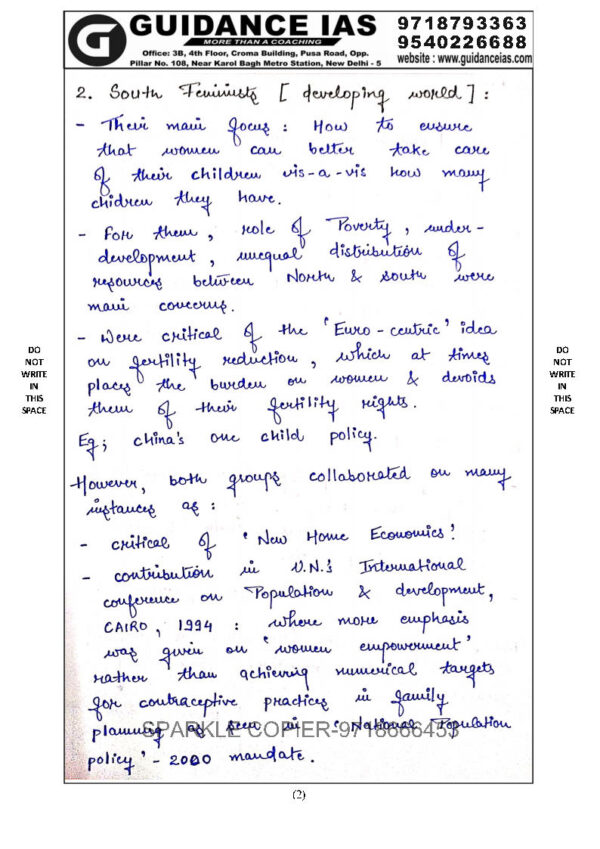 G
GUIDANCE IAS
MORE THAN A COACHING
Office: 3B, 4th Floor, Croma Building, Pusa Road, Opp.
Pillar No. 108, Near Karol Bagh Metro Station, New Delhi - 5
9718793363
9540226688
website : www.guidanceias.com
2. South Feminists [developing world] :
- Their main focus : How to ensure
that women can better take care
of their children vis-a-vis how many
chidren they have.
- For them, role of Poverty, under-
development, unequal distribution of
resources between North & South were
main concerns.
- Were critical of the 'Euro-centric' idea
on fertility reduction, which at times
places the burden on women & devoids
them of their fertility rights.
Eg; China's one child policy.
However, both groups collaborated on many
instances as :
- critical of 'New Home Economics'.
- contribution in U.N.'s International
conference on Population & development,
CAIRO, 1994 : where more emphasis
was given on 'women empowerment'
rather than achieving numerical targets
for contraceptive practices in family
planning as seen in 'National Population
policy' - 2000 mandate.
SPARKLE COPIER-9718666453
DO
NOT
WRITE
IN
THIS
SPACE
DO
NOT
WRITE
IN
THIS
SPACE
(2)